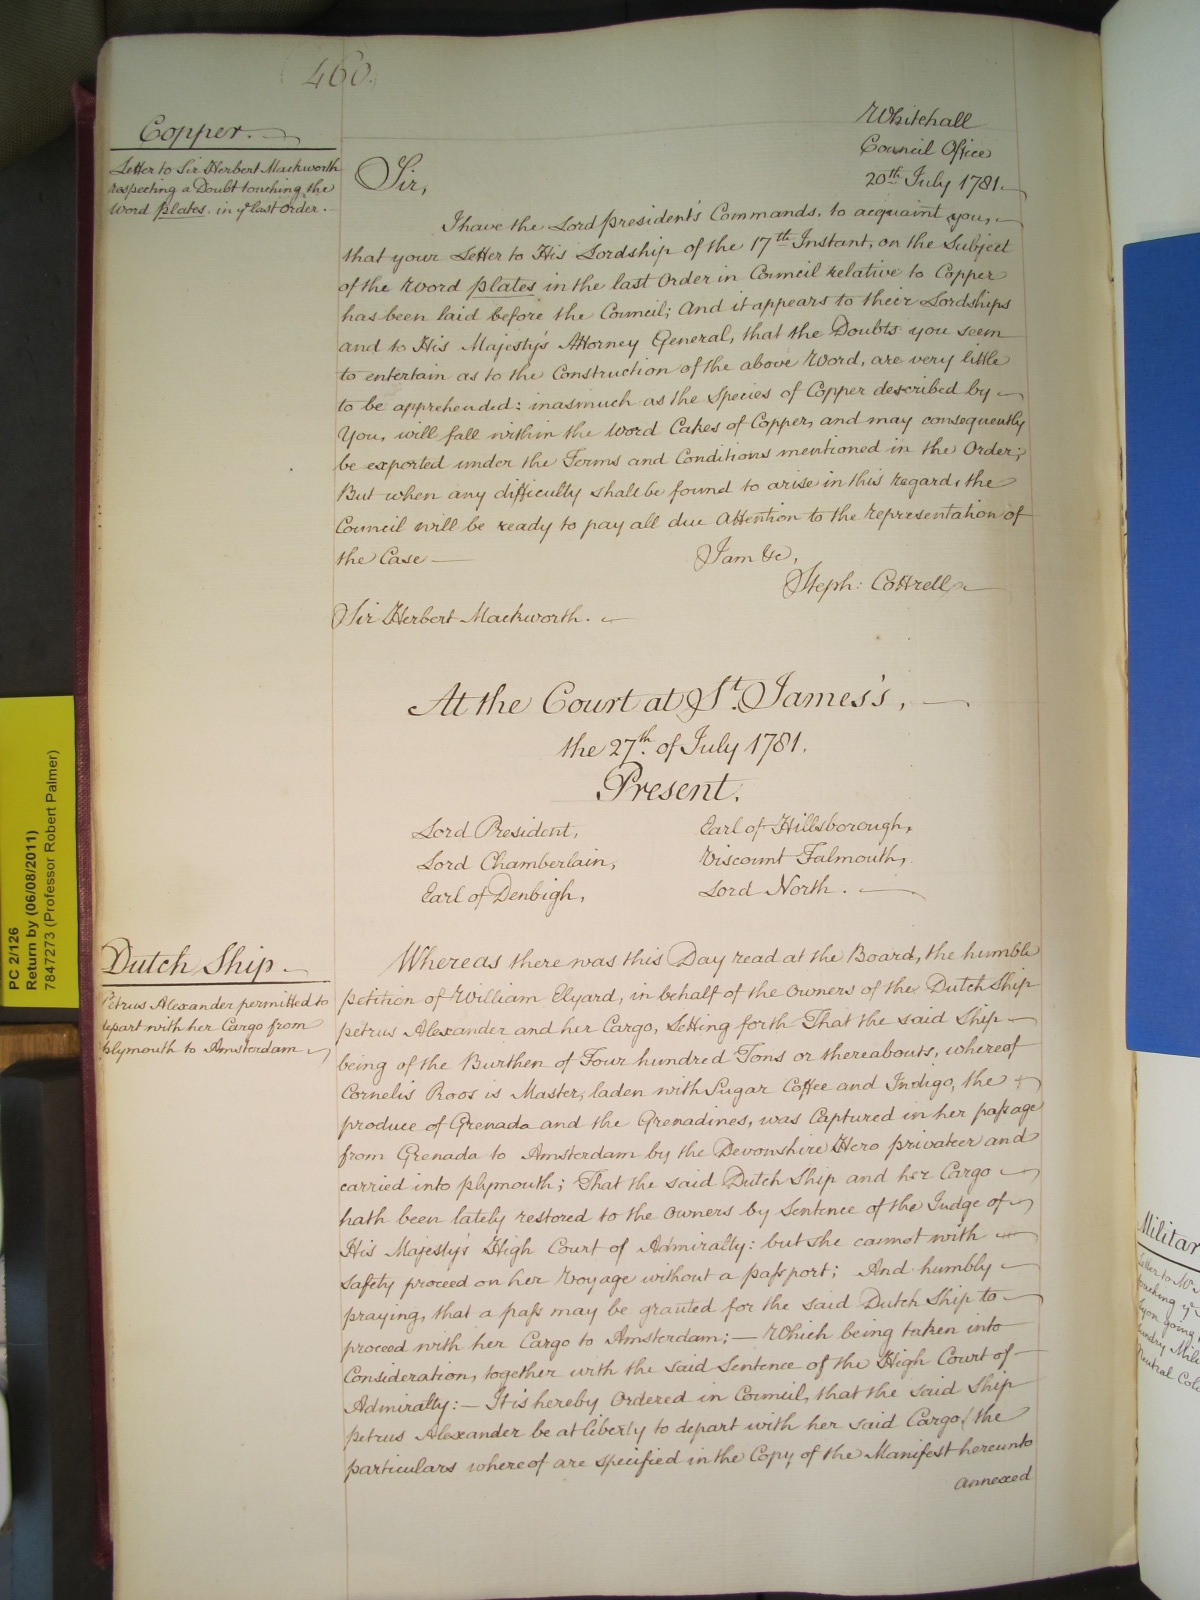 460.
Copper.
Letter to Sir Herbert Mackworth
respecting a Doubt touching the
Word plates. in yͤ last Order.
Whitehall
Council Office
20th July 1781.
Sir,
I have the Lord president's Commands, to acquaint you,
that your Letter to His Lordship of the 17th Instant, on the Subject
of the Word plates in the last Order in Council relative to Copper
has been laid before the Council; And it appears to their Lordships
and to His Majesty's Attorney General, that the Doubts you seem
to entertain as to the Construction of the above Word, are very little
to be apprehended: inasmuch as the Species of Copper described by
You, will fall within the Word Cakes of Copper, and may consequently
be exported under the Terms and Conditions mentioned in the Order;
But when any difficulty shall be found to arise in this regard, the
Council will be ready to pay all due Attention to the representation of
the Case —
I am &c,
Steph: Cottrell
Sir Herbert Mackworth.
At the Court at St. James's,
the 27th of July 1781.
Present.
Lord President, Earl of Hillsborough,
Lord Chamberlain, Viscount Falmouth,
Earl of Denbigh, Lord North.
Dutch Ship.
Petrus Alexander permitted to
depart with her Cargo from
plymouth to Amsterdam
Whereas there was this Day read at the Board, the humble
petition of William Elyard, in behalf of the Owners of the Dutch Ship
petrus Alexander and her Cargo, Setting forth That the said Ship
being of the Burthen of Four hundred Tons or thereabouts, whereof
Cornelis Roos is Master, laden with Sugar Coffee and Indigo, the
produce of Grenada and the Grenadines, was Captured in her passage
from Grenada to Amsterdam by the Devonshire Hero privateer and
carried into plymouth; That the said Dutch Ship and her Cargo
hath been lately restored to the Owners by Sentence of the Judge of
His Majesty's High Court of Admiralty: but she cannot with
safety proceed on her Voyage without a passport; And humbly
praying, that a pass may be granted for the said Dutch Ship to
proceed with her Cargo to Amsterdam; — Which being taken into
Consideration, together with the said Sentence of the High Court of
Admiralty: — It is hereby Ordered in Council, that the said Ship
petrus Alexander be at liberty to depart with her said Cargo (the
particulars whereof are specified in the Copy of the Manifest hereunto
annexed
PC 2/126
Return by (06/08/2011)
7847273 (Professor Robert Palmer)
Militar
Letter to Mr
going
Mili